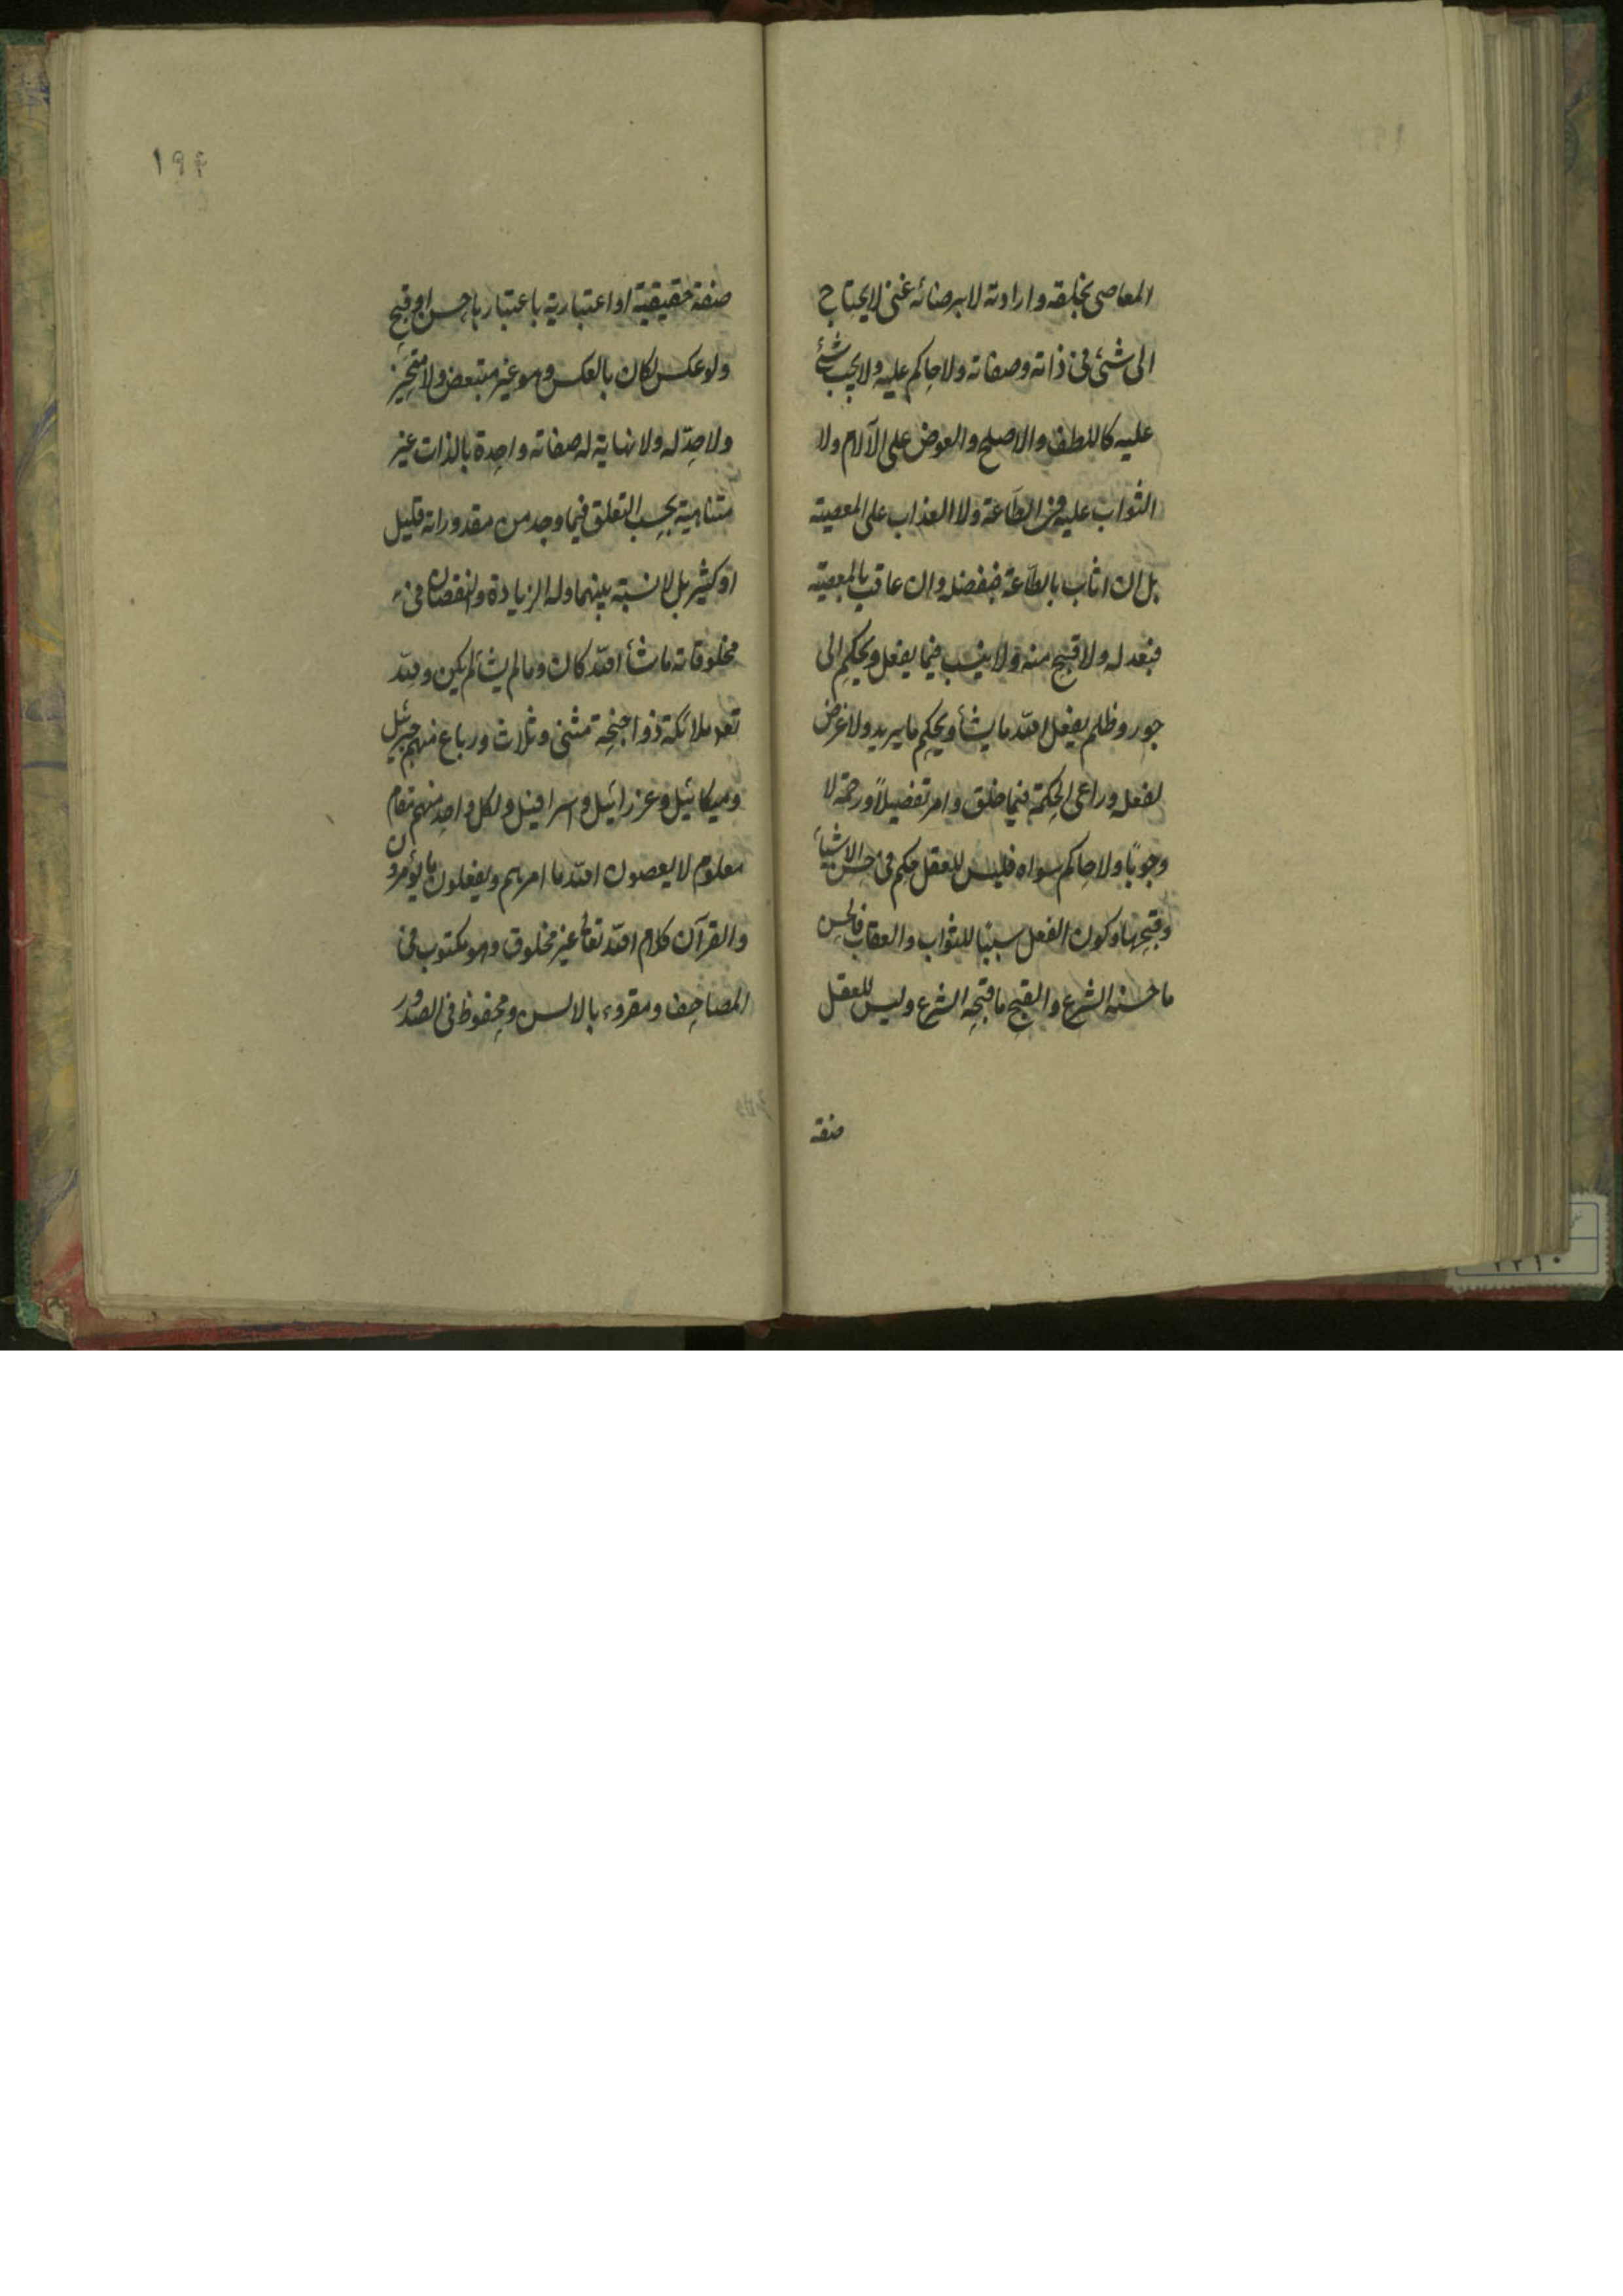 المعاصى بخلقه وارادته لا برضائه غنى لا يحتاج
الى شئ فى ذاته وصفاته ولا حاكم عليه ولا يجب شئ
عليه كاللطف والاصلح والعوض على الآلام ولا
الثواب عليه فى الطاعة ولا العذاب على المعصية
بل ان اثاب بالطاعة فبفضله وان عاقب بالمعصية
فبعدله ولا قبيح منه ولا ينسب فيما يفعل ويحكم الى
جور وظلم يفعل الله ما يشأ ويحكم ما يريد ولا غرض
لفعله وراعى الحكمة فيما خلق وامر تفضيلاً ورحمة لا
وجوبًا ولا حاكم سواه فليس للعقل حكم فى حسن الاشيأ
وقبحها وكون الفعل سببا للثواب والعقاب فالحسن
ما حسنه الشرع والقبيح ما قبحه الشرع وليس للعقل
صفة
۱۹۴
صفة حقيقية او اعتبارية باعتبارها حسن او قبح
ولو عكس لكان بالعكس وهو غير متبعض ولا متحيز
ولا حدّ له ولا نهاية له صفاته واحدة بالذات غير
متناهية بحسب التعلق فيما وجد من مقدوراته قليل
او كثير بل لا نسبة بينهما وله الزيادة والنقصان فى
مخلوقاته ما شأ الله كان وما لم يشأ لم يكن ولله
تعه ملائكة ذو اجنحة مثنى وثلاث ورباع منهم جبرئيل
وميكائيل وعزرائيل واسرافيل ولكل واحد منهم مقام
معلوم لا يعصون الله ما امرهم ويفعلون ما يؤمرون
والقرآن كلام الله تعالى غير مخلوق وهو مكتوب فى
المصاحف ومقروء بالالسن ومحفوظ فى الصدور